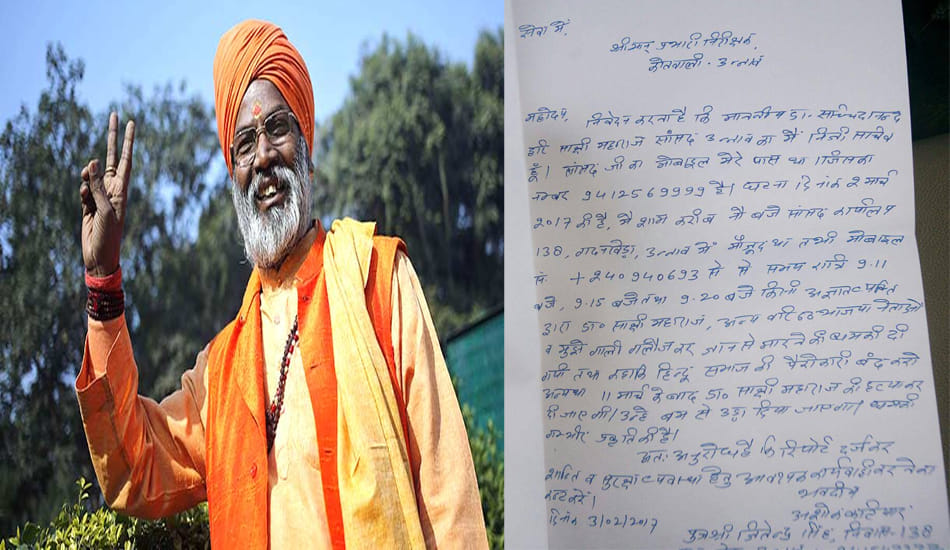 सेवा में,
श्रीमान् प्रभारी निरीक्षक,
कोतवाली - उन्नाव
महोदय, निवेदन करना है कि माननीय डा. सच्चिदानन्द
हरि साक्षी महाराज सांसद उन्नाव का मैं निजी सचिव
हूँ। सांसद जी का मोबाइल मेरे पास था जिसका
नम्बर 9412569999 है। घटना दिनांक 2 मार्च
2017 की है, मैं शाम करीब नौ बजे सांसद कार्यालय
138, गदनखेड़ा, उन्नाव में मौजूद था तभी मोबाइल
सं. +240940693 से समय रात्रि 9.11
बजे, 9.15 बजे तथा 9.20 बजे किसी अज्ञात व्यक्ति
द्वारा डा० साक्षी महाराज, अन्य वरिष्ठ भाजपा नेताओं
व मुझे गाली गलौज कर जान से मारने की धमकी दी
गयी तथा कहा कि हिन्दू समाज की पैरोकारी बंद करो
अन्यथा 11 मार्च के बाद डा० साक्षी महाराज की हत्या कर
दी जाएगी। उन्हें बम से उड़ा दिया जाएगा। धमकी
गम्भीर प्रकृति की है।
अतः अनुरोध है कि रिपोर्ट दर्ज कर
शान्ति व सुरक्षा व्यवस्था हेतु आवश्यक कार्यवाही कर
कष्ट करें।
भवदीय
दिनांक 3/02/2017
अशोक कटियार
पुत्र श्री जितेन्द्र सिंह, निवास-138